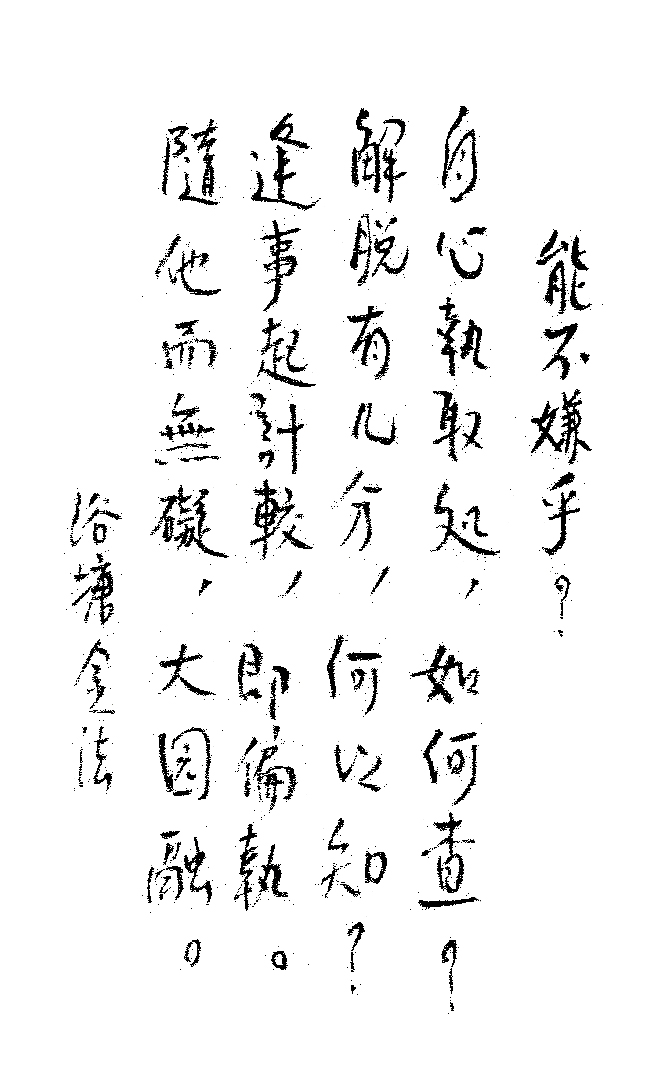 能不嫌乎?
自心執取处,如何查?
解脱有几分,何以知?
逢事起計較,即偏執。
隨他而無礙,大圆融。
浴塘金法